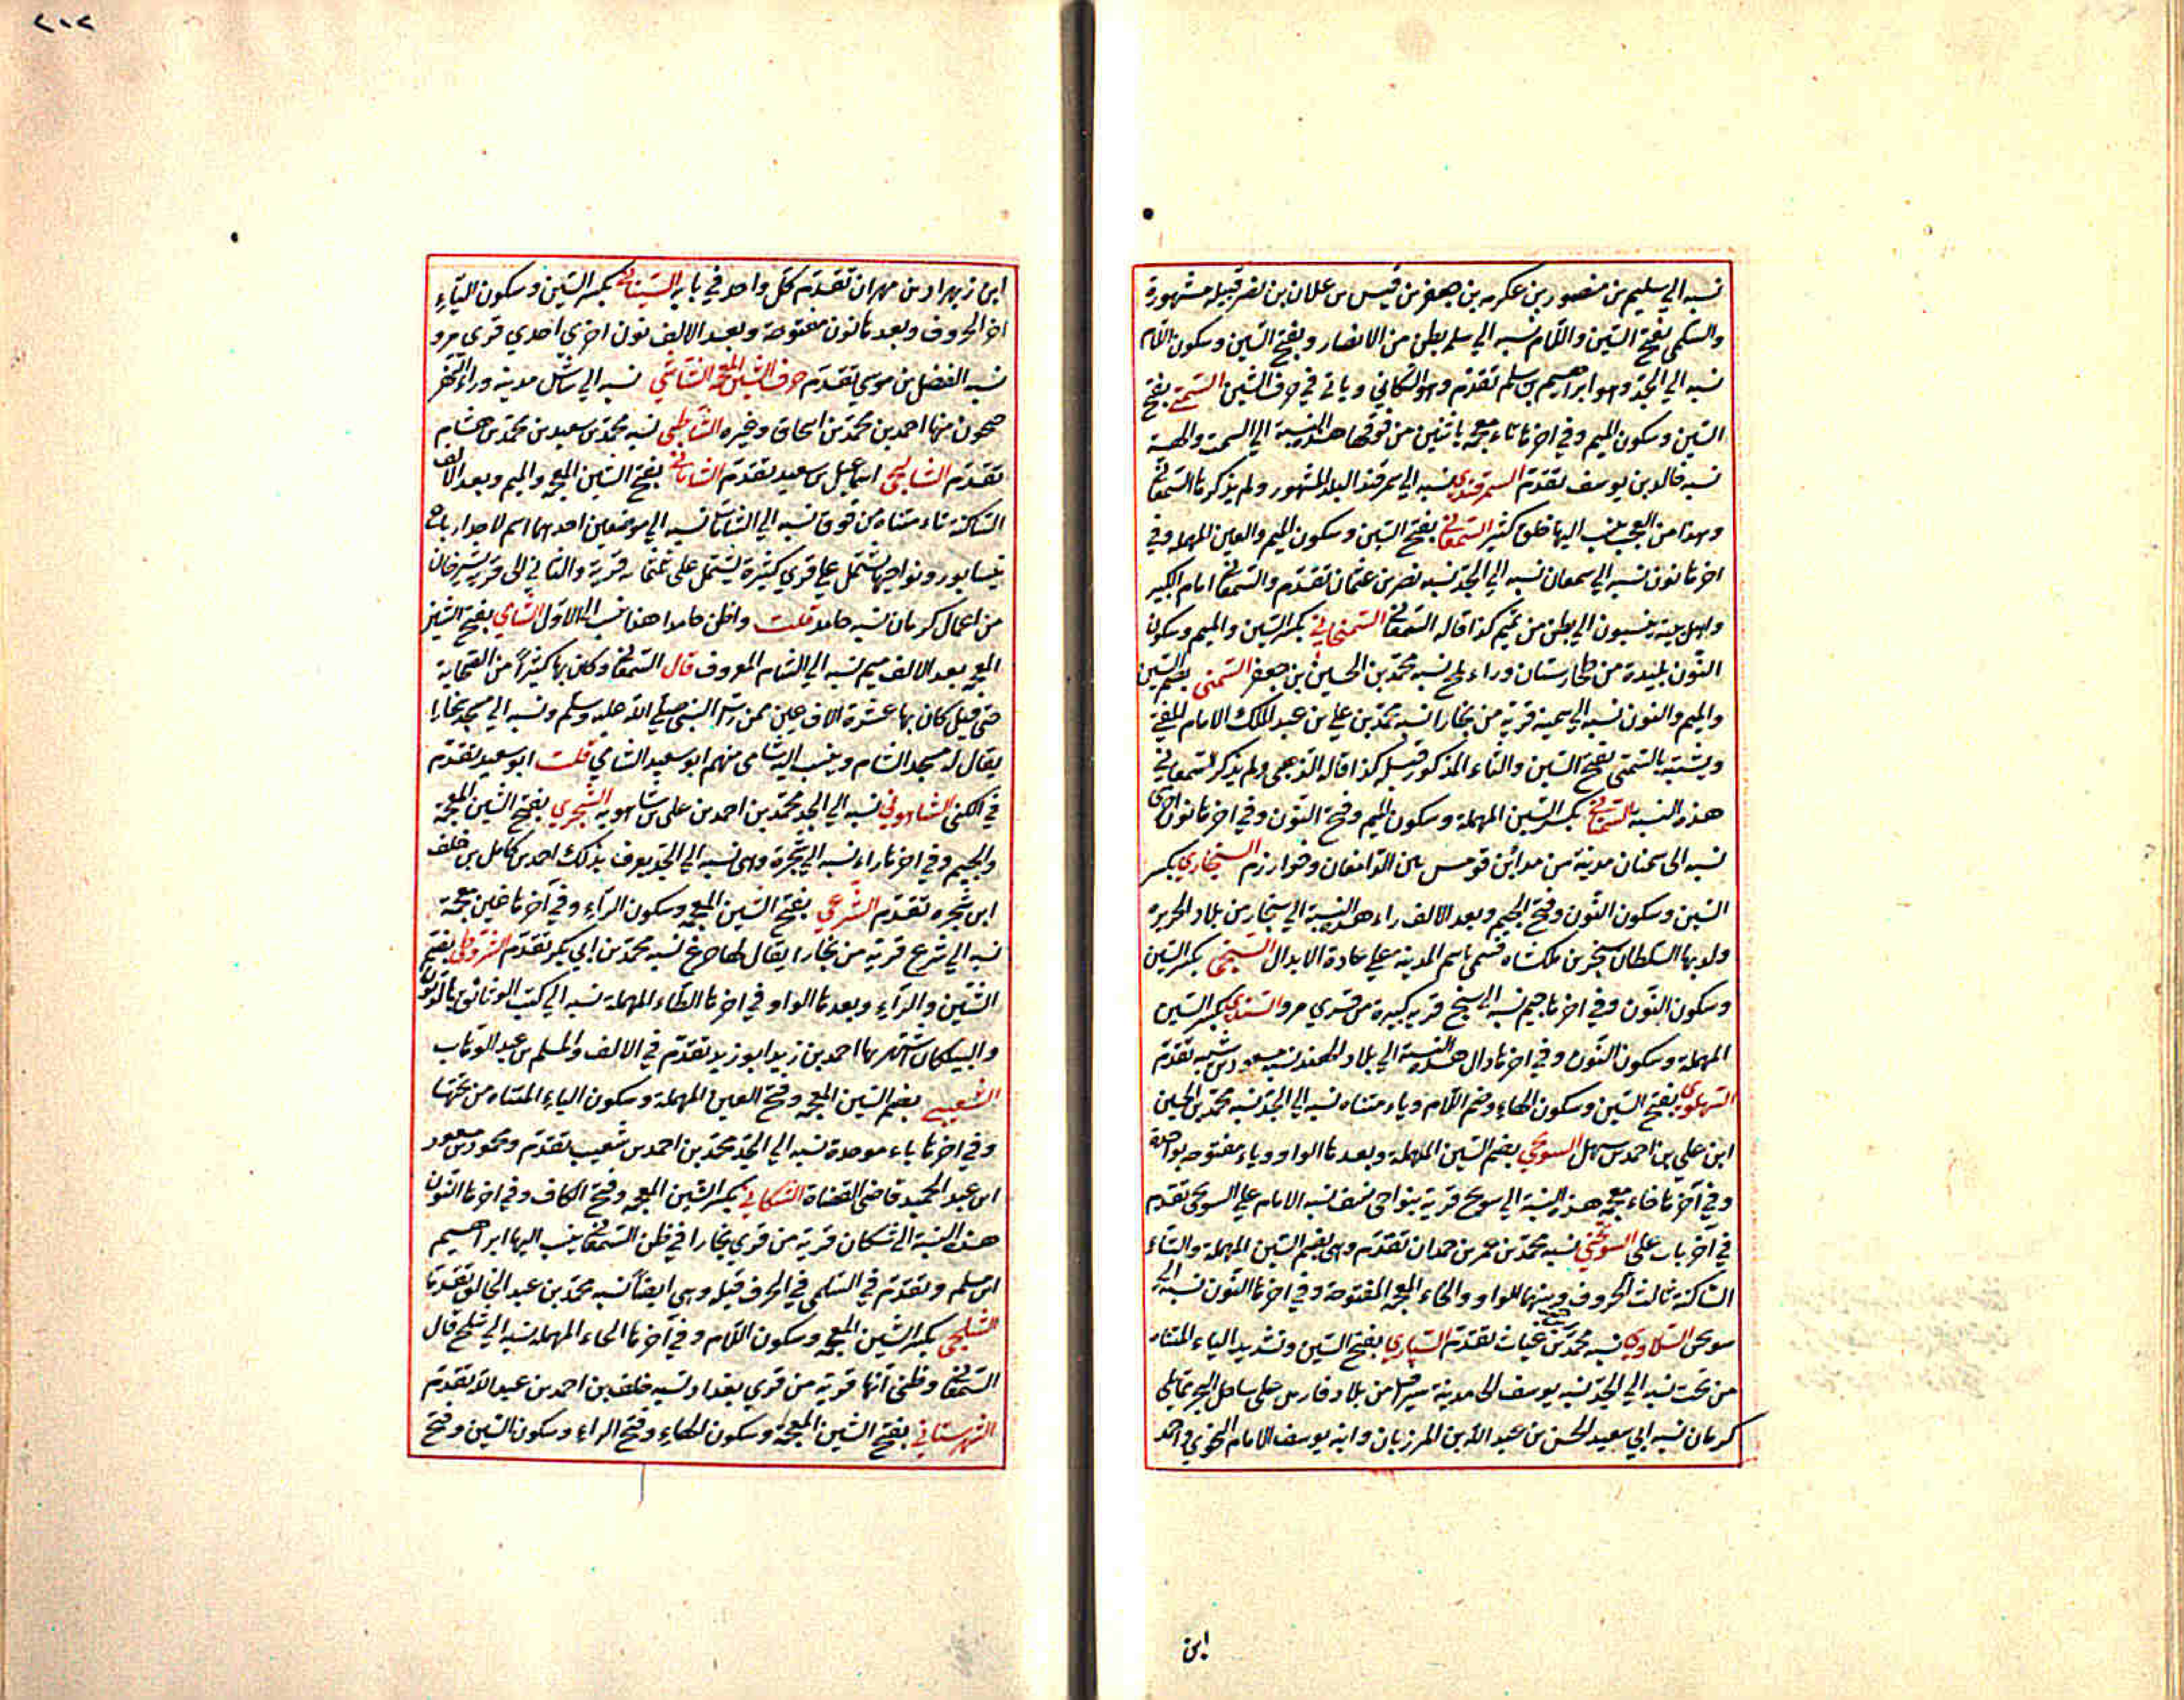 نسبه الي سليم بن منصور بن عكرمه بن حصفر بن قيس بن علان بن نضر قبيله مشهورة
والسلمى بفتح السّين واللّام نسبه الي سلمه بطن من الانصار وبفتح السّين وسكون اللّام
نسبه الي الجدّ وهو ابراهيم بن سلم تقدّم وهو الشكاني وياتى في حرف الشين السّمتى بفتح
السّين وسكون الميم وفي اخرها تاء معجمه باثنين من فوقها هذه النسبة الي السمت والهيئة
نسبه خالد بن يوسف تقدّم السمرقندي نسبه الي سمرقند البلد المشهور ولم يذكرها السّمعانى
وهذا من العجب ينسب اليها خلق كثير السّمعانى بفتح السّين وسكون الميم والعين المهمله وفي
اخرها نون نسبه الي سمعان نسبه الي الجدّ نسبه نصر بن عثمان تقدّم والسّمعانى امام الكبير
واهل بيته ينسبون الي بطن من تميم كذا قاله السّمعانى السّمنجانى بكسر السّين والميم وسكون
النّون بليدة من طخارستان وراء بلخ نسبه محمّد بن الحسين بن جعفر السّمنى بضم السّين
والميم والنون نسبه الي سمنه قرية من بخارا نسبه محمّد بن علي بن عبد الملك الامام المفتى
ويشتبه بالسّمتى بفتح السّين والتاء المذكور قبله كذا قاله الذهبى ولم يذكر السّمعاني
هذه النسبه السّمنانى بكسر السّين المهملة وسكون الميم وفتح النّون وفي اخرها نون اخرى
نسبه الى سمنان مدينة من مدائن قومس بين الدّامغان وخوارزم السنجاري بكسر
السّين وسكون النّون وفتح الجيم وبعد الالف راء هذه النسبة الي سنجار من بلاد الجزيره
ولد بها السّلطان سنجر بن ملكشاه فسمّى باسم المدينه على عادة الابدال السّنجى بكسر السّين
وسكون النّون وفي اخرها جيم نسبه الي سنج قريه كبيرة من قرى مرو السّندي بكسر السّين
المهملة وسكون النّون وفي اخرها دال هذه النسبة الي بلاد الهند نسبه مسعود بن شيبه تقدّم
السّهلوى بفتح السّين وسكون الهاء وضم اللّام وياء مثناه نسبه الي الجدّ نسبه محمّد بن الحسين
ابن علي بن احمد بن سهل السوبخى بضم السّين المهملة وبعدها الواو وباء مفتوحه بواحدة
وفي آخرها خاء معجمه هذه النسبة الي سوبخ قرية بنواحى نسف نسبه الامام علي السوبخى تقدم
في آخر باب على السوتخنى نسبه محمّد بن عمر بن حمدان تقدّم وهى بضم السّين المهملة والتّاء
السّاكنة ثالث الحروف وبينهما الواو والخاء المعجمه المفتوحة وفي اخرها النّون نسبه الي
سوتخن السّلاوى نسبه محمّد بن غياث تقدّم السّياري بفتح السّين وتشديد الياء المثناه
من تحت نسبه الي الجدّ نسبه يوسف الى مدينة سيراف من بلاد فارس على ساحل البحر مما يلي
كرمان نسبه ابي سعيد الحسن بن عبد اللّه بن المرزبان وابنه يوسف الامام النحوي واحمد
ابن
٢١٢
ابن زبهراد بن مهران تقدّم كلّ واحد في بابه السّينانى بكسر السّين وسكون الياء
اخر الحروف وبعدها نون مفتوحة وبعد الالف نون اخرى احدي قرى مرو
نسبه الفضل بن موسى تقدّم حرف الشّين المعجمه الشّاشي نسبه الي شاش مدينه وراء النهر
جيحون منها احمد بن محمّد بن اسحاق وغيره الشّاطبى نسبه محمّد بن سعيد بن محمّد بن هشام
تقدّم الشالنجى اسماعيل بن سعيد تقدّم الشّاماتى بفتح الشّين المعجمه والميم وبعد الالف
السّاكنة تاء مثناه من فوق نسبه الي الشّامات نسبه الي موضعين احدهما اسم لاحد ارباع
نيسابور ونواحيها تشتمل على قري كثيرة تشتمل على ثلثمايه قرية والثاني الى قرية بشيرجان
من اعمال كرمان نسبه حامد قلت واظن حامدا هذا نسبه الي الاوّل الشّامي بفتح الشّين
المعجمه بعد الالف ميم نسبه الي الشام المعروف قال السّمعانى وكان بها كثيراً من الصّحابة
حتى قيل كان بها عشرة الاف عين ممن رات النّبى صلى الله عليه وسلم ونسبه الي مسجد بخارا
يقال له مسجد الشام وينسب اليه شامى منهم ابو سعيد الشامي قلت ابو سعيد تقدّم
في الكنى الشاهوني نسبه الي الجد محمّد بن احمد بن على بن شاهويه الشّجري بفتح الشّين المعجمة
والجيم وفي اخرها راء نسبه الي شجرة وهى نسبه الي الجدّ يعرف بذلك احمد بن كامل بن خلف
ابن شجره تقدّم الشّرغي بفتح الشّين المعجمه وسكون الرّاء وفي آخرها غين معجمة
نسبه الي شرغ قرية من بخارا يقال لها جرغ نسبه محمّد بن ابي بكر تقدّم الشّروطى بضم
الشّين والرّاء وبعدها الواو وفي اخرها الطّاء المهملة نسبه الي كتب الوثائق بالديون
والبيكات اشتهر بها احمد بن زيد ابو زيد تقدّم في الالف والمسلم بن عبد الوهاب
الشعيبى بضم الشّين المعجمه وفتح العين المهملة وسكون الياء المثناه من تحتها
وفي اخرها باء موحدة نسبه الي الجدّ محمّد بن احمد بن شعيب تقدّم ومحمود بن مسعود
ابن عبد الحميد قاضى القضاة الشكاني بكسر الشّين المعجمه وفتح الكاف وفي اخرها النّون
هذه النسبة الى شكان قرية من قري بخارا في ظن السّمعانى ينسب اليها ابراهيم
ابن سلم وتقدّم في السّلمى في الحرف قبله وهى ايضاً نسبه محمّد بن عبد الخالق تقدّما
الشّلحى بكسر الشّين المعجمه وسكون اللّام وفي آخرها الحاء المهملة نسبه الي شلح قال
السّمعانى وظنى انّها قرية من قري بغداد نسبه خلف بن احمد بن عبد اللّه تقدّم
الشهرستاني بفتح الشّين المعجمة وسكون الهاء وفتح الراء وسكون السّين وفتح